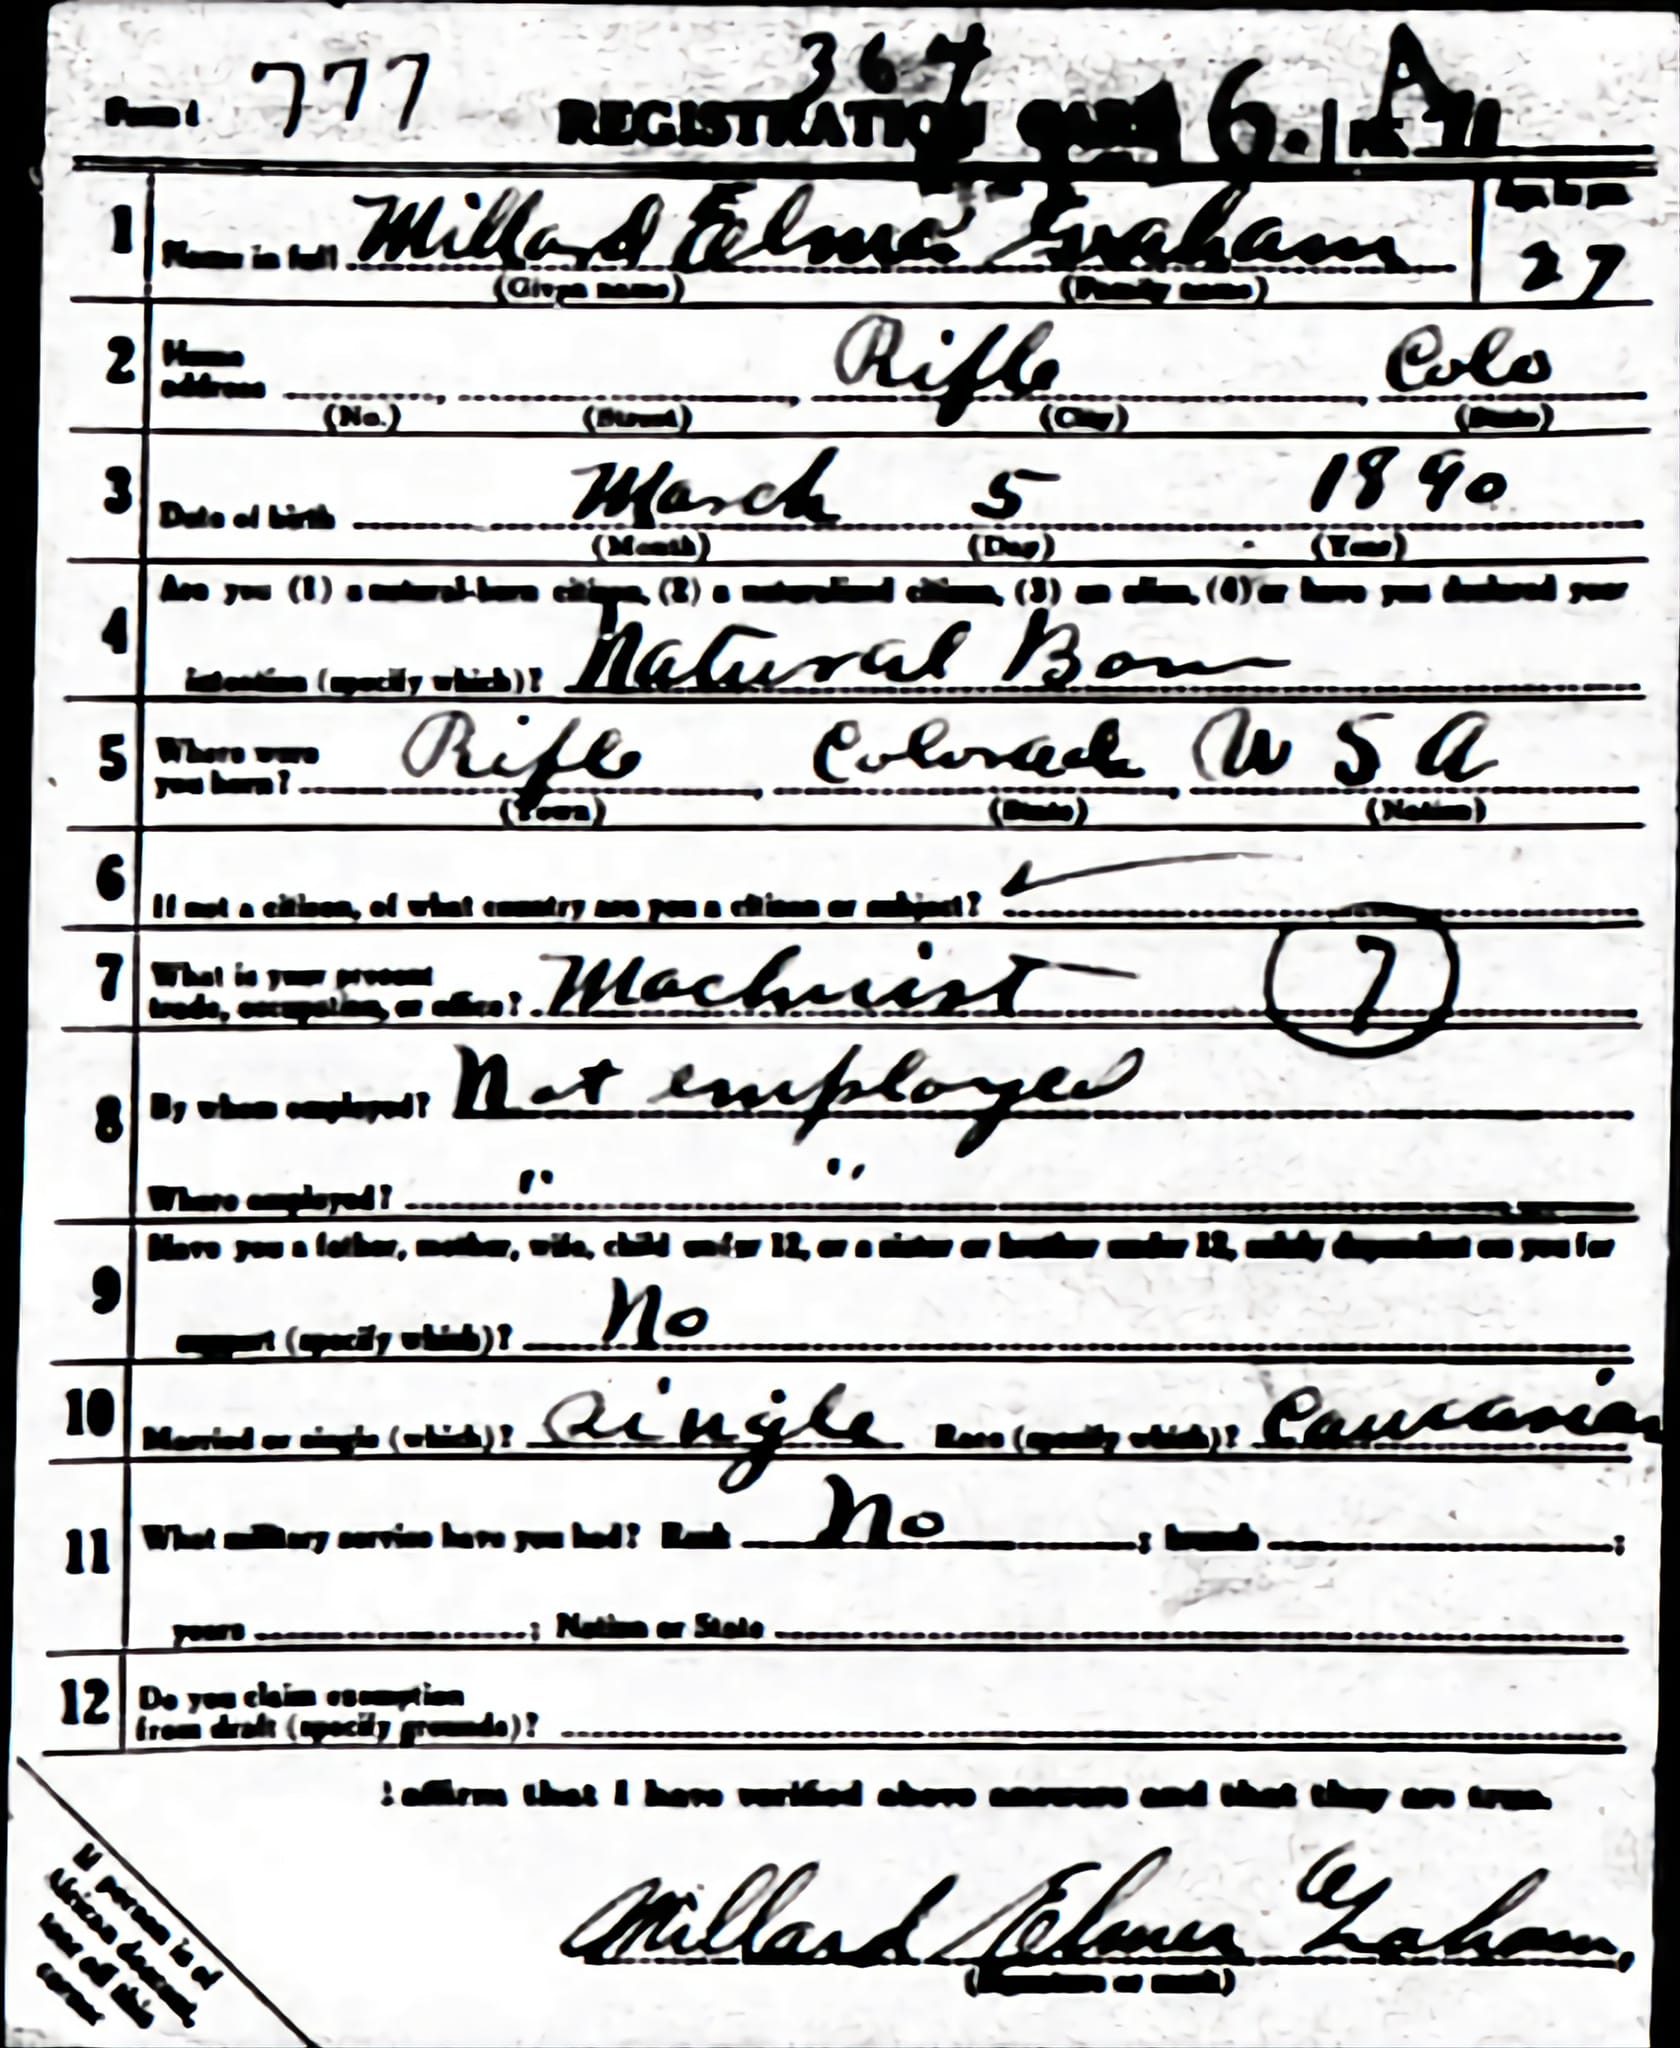 364 A
Form 1 777 REGISTRATION CARD 6.
1 Name in full Millard Elmer Graham Age, in yrs
(Given name) (Family name) 27
2 Home address Rifle Colo
(No.) (Street) (City) (State)
3 Date of birth March 5 1890
(Month) (Day) (Year)
4 Are you (1) a natural-born citizen, (2) a naturalized citizen, (3) an alien, (4) or have you declared your
intention (specify which)? Natural Born
5 Where were you born? Rifle Colorado U S A
(Town) (State) (Nation)
6 If not a citizen, of what country are you a citizen or subject?
7 What is your present
trade, occupation, or office? Machinist 7
8 By whom employed? Not employed
Where employed? " "
9 Have you a father, mother, wife, child under 12, or a sister or brother under 12, solely dependent on you for
support (specify which)? No
10 Married or single (which)? Single Race (specify which)? Caucasian
11 What military service have you had? Rank No ; branch ;
years ; Nation or State
12 Do you claim exemption
from draft (specify grounds)?
I affirm that I have verified above answers and that they are true.
Millard Elmer Graham,
(Signature or mark)
If person is of
African descent,
tear off this
corner